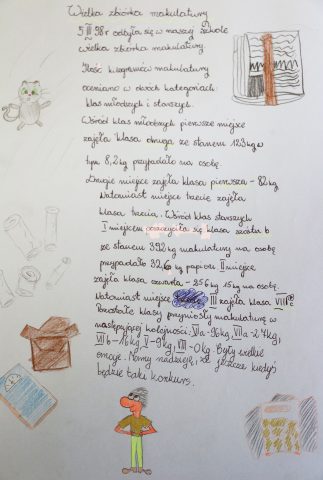 Wielka zbiórka makulatury
5 III 98 r odbyła się w naszej szkole
wielka zbiórka makulatury.
Ilość kilogramów makulatury
oceniano w dwóch kategoriach:
klas młodszych i starszych.
Wśród klas młodszych pierwsze miejsce
zajęła klasa druga ze stanem 123 kg w
tym 8,2 kg przypadało na osobę.
Drugie miejsce zajęła klasa pierwsza – 82 kg
Natomiast miejsce trzecie zajęła
klasa trzecia. Wśród klas starszych
I miejscem poszczyciła się klasa szósta b
ze stanem 392 kg makulatury na osobę
przypadało kg papieru II miejsce
zajęła klasa czwarta – 256 kg 15 kg na osobę.
Natomiast miejsce III zajęła klasa
Pozostałe klasy przyniosły makulaturę w
następującej kolejności: VI a – 96 kg, VII a – 27 kg,
VII b – 16 kg, V – 9 kg, VIII – 0 kg. Były wielkie
emocje. Mamy nadzieję, że jeszcze kiedyś
będzie taki konkurs.